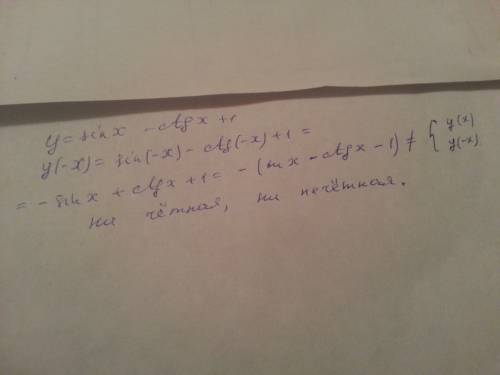 y = sin x - ctg x + 1
y(-x) = sin(-x) - ctg(-x) + 1 =
= - sin x + ctg x + 1 = - (sin x - ctg x - 1) ≠ { y(x) y(-x)
ни чётная, ни нечётная.